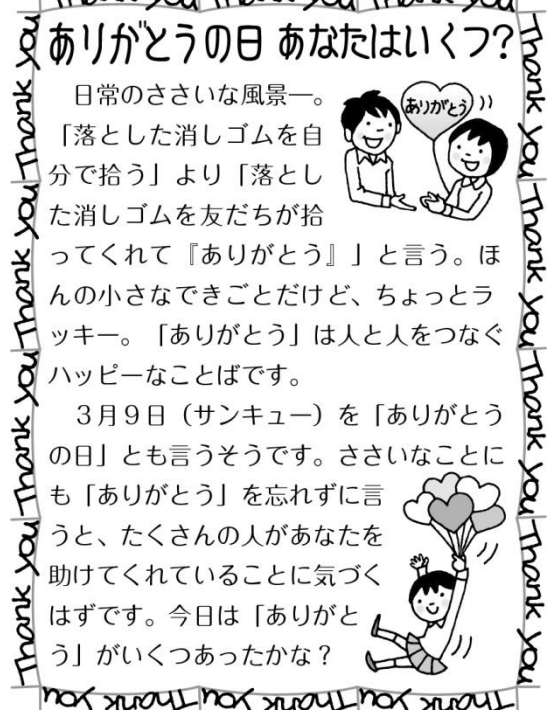 Thank you Thank you Thank you
ありがとうの日 あなたはいくつ?
日常のささいな風景―。
「落とした消しゴムを自
分で拾う」より「落とし
た消しゴムを友だちが拾
ってくれて『ありがとう』」と言う。ほ
んの小さなできごとだけど、ちょっとラ
ッキー。「ありがとう」は人と人をつなぐ
ハッピーなことばです。
ありがとう
3月9日(サンキュー)を「ありがとう
の日」とも言うそうです。ささいなことに
も「ありがとう」を忘れずに言
うと、たくさんの人があなたを
助けてくれていることに気づく
はずです。今日は「ありがと
う」がいくつあったかな?
Thank you Thank you Thank you Thank you
Thank you Thank you Thank you Thank you
Thank you Thank you Thank you